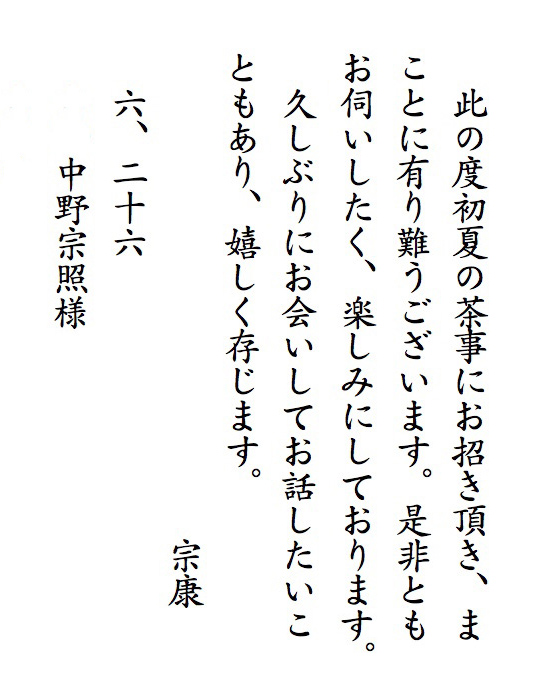 此の度初夏の茶事にお招き頂き、ま
ことに有り難うございます。是非とも
お伺いしたく、楽しみにしております。
久しぶりにお会いしてお話したいこ
ともあり、嬉しく存じます。
宗康
六、二十六
中野宗照様